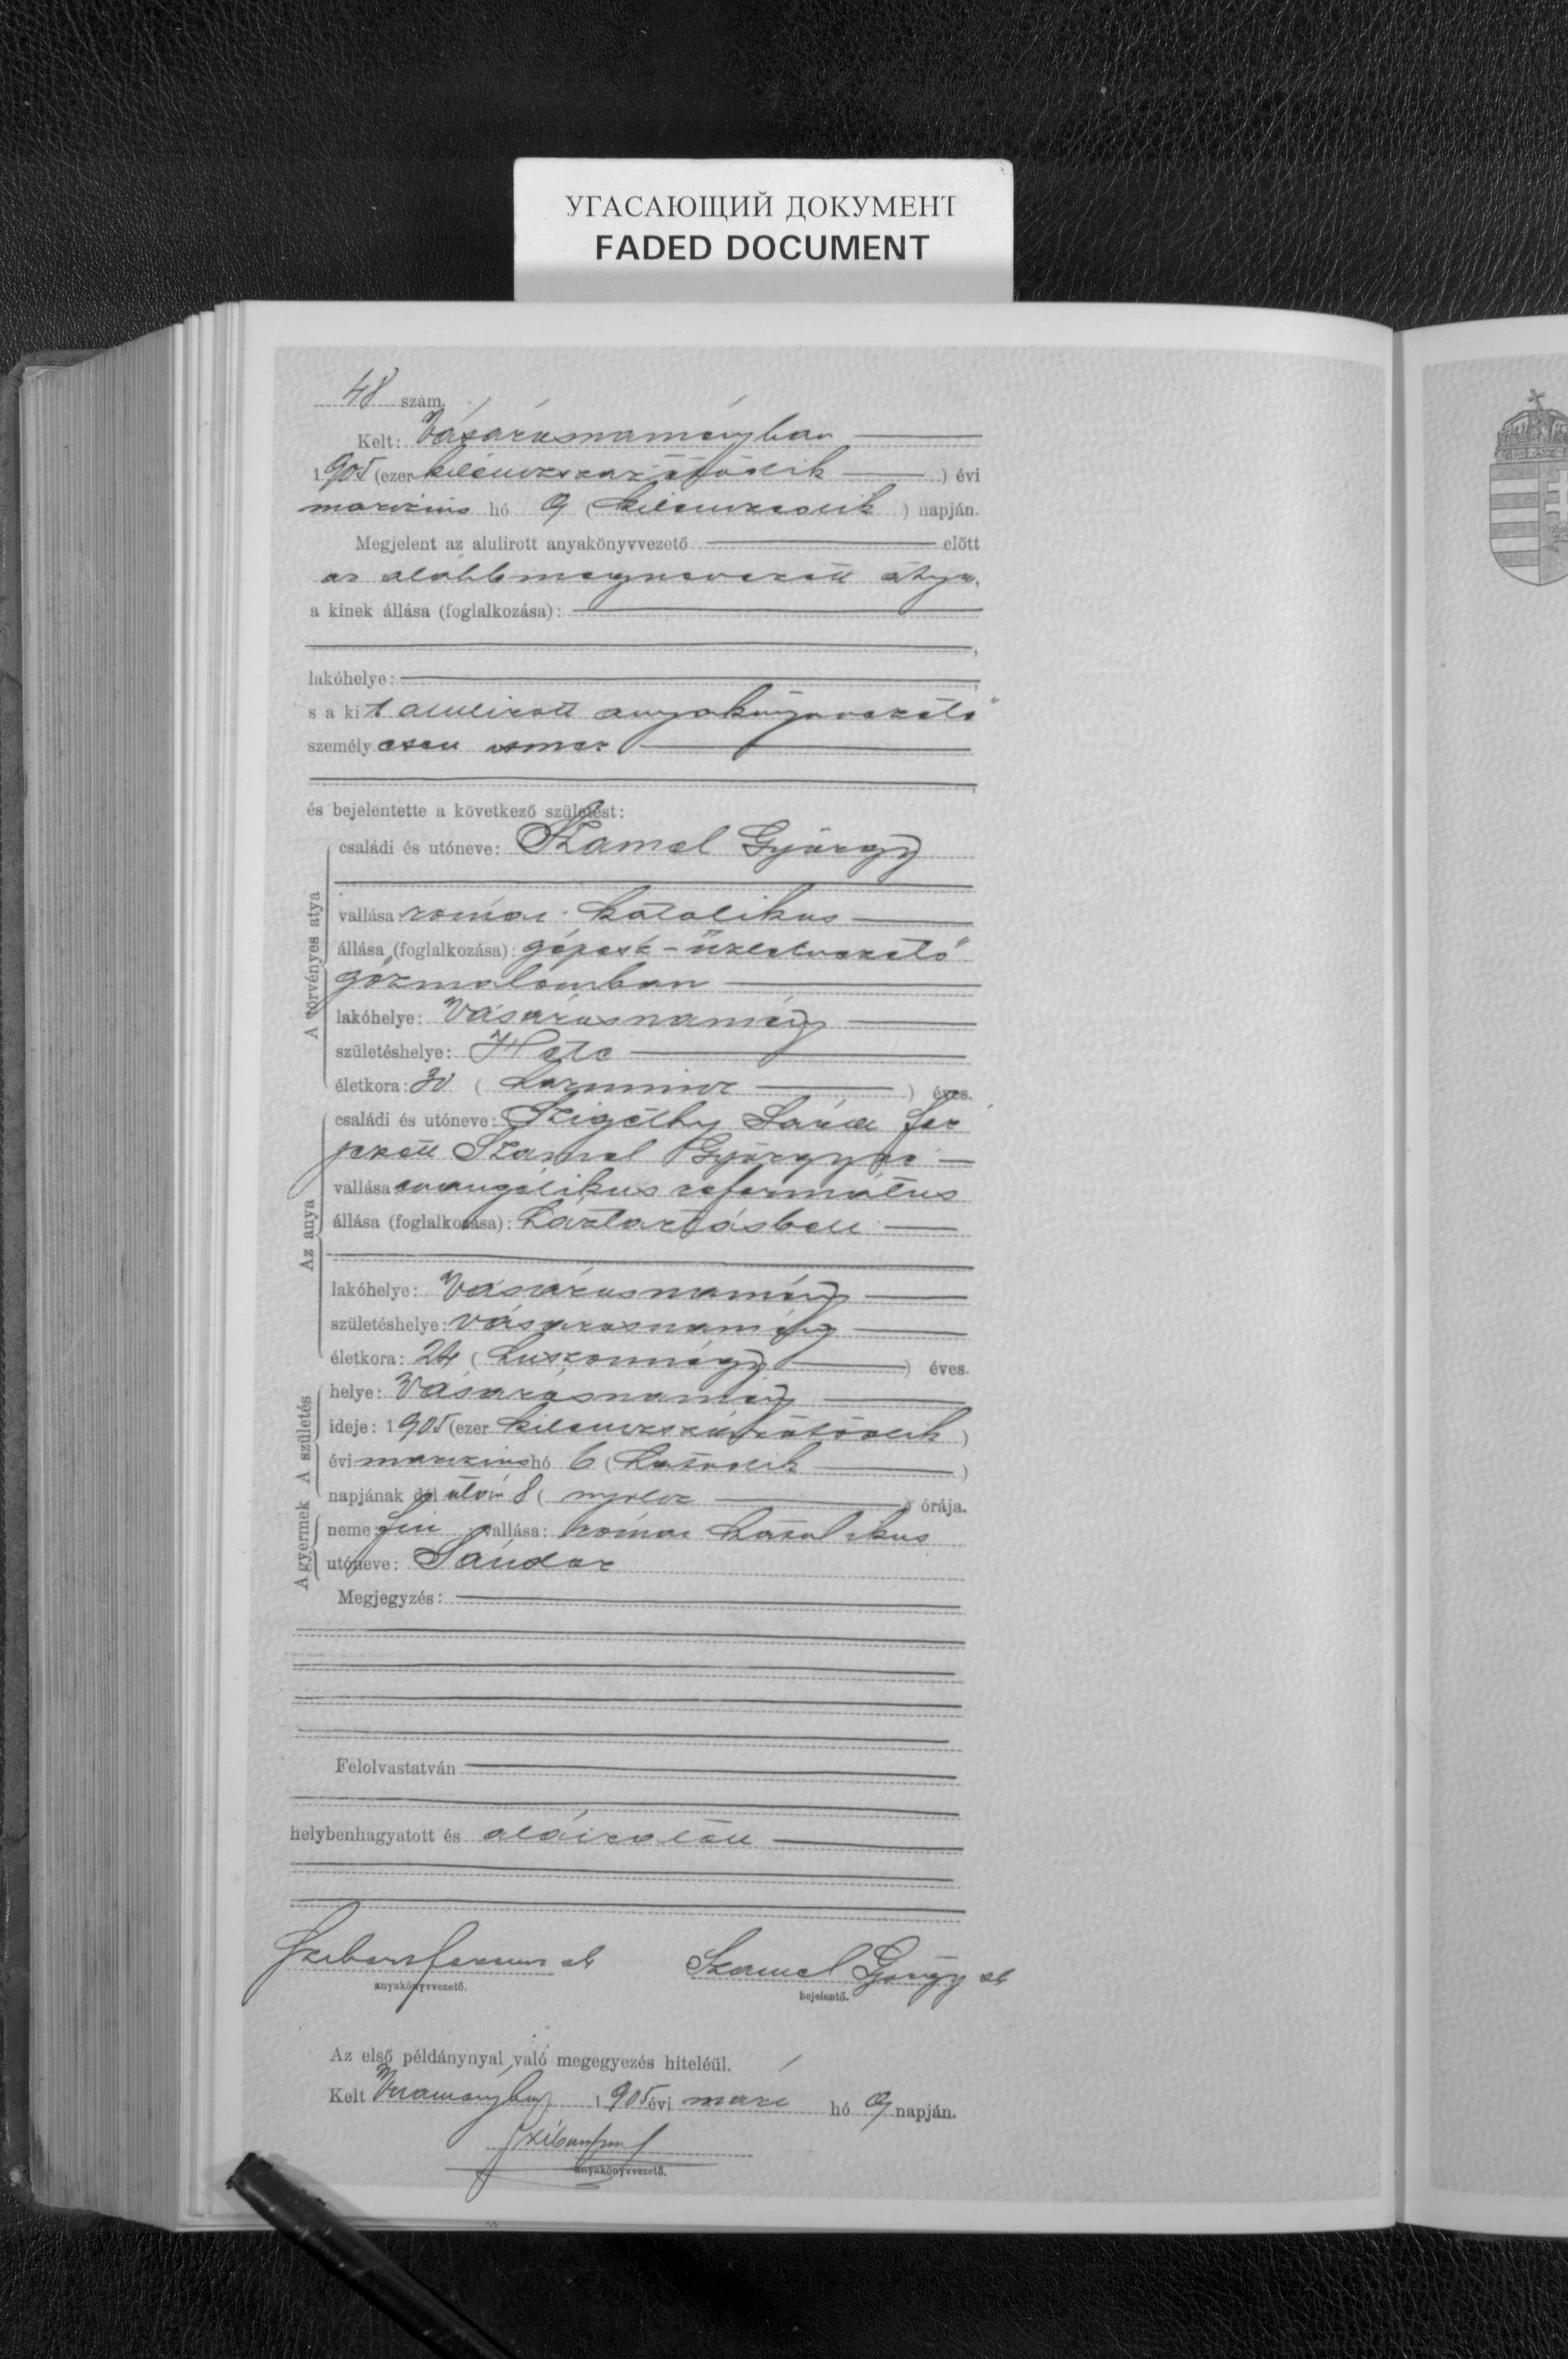 УГАСАЮЩИЙ ДОКУМЕНТ
FADED DOCUMENT
48 szám.
Kelt: Vásárosnaményban
1905 (ezer kilenczszázötödik) évi
marczius hó 9 (kilenczedik) napján.
Megjelent az alulirott anyakönyvvezető előtt
az alább megnevezett atya,
a kinek állása (foglalkozása):
lakóhelye:
s a kit alulirott anyakönyvvezető
személyesen ismer
és bejelentette a következő születést:
A törvényes atya
családi és utóneve: Szamel György
vallása római katolikus
állása (foglalkozása): gépész-üzletvezető
gőzmalomban
lakóhelye: Vásárosnamény
születéshelye: Hete
életkora: 30 (harmincz) éves.
Az anya
családi és utóneve: Szigethy Sára fér
jezett Szamel Györgyné
vallása evangélikus református
állása (foglalkozása): háztartásbeli
lakóhelye: Vásárosnamény
születéshelye: Vásárosnamény
életkora: 24 (huszonnégy) éves.
A születés
helye: Vásárosnamény
ideje: 1905 (ezer kilenczszázötödik)
évi marczius hó 6 (hatodik)
napjának dél után 8 (nyolcz) órája.
A gyermek
neme: fiu vallása: római katolikus
utóneve: Sándor
Megjegyzés:
Felolvastatván
helybenhagyatott és aláiratott
sk Szamel György sk
anyakönyvvezető. bejelentő.
Az első példánynyal való megegyezés hiteléül.
Kelt 1905 évi márc hó 9 napján.
anyakönyvvezető.